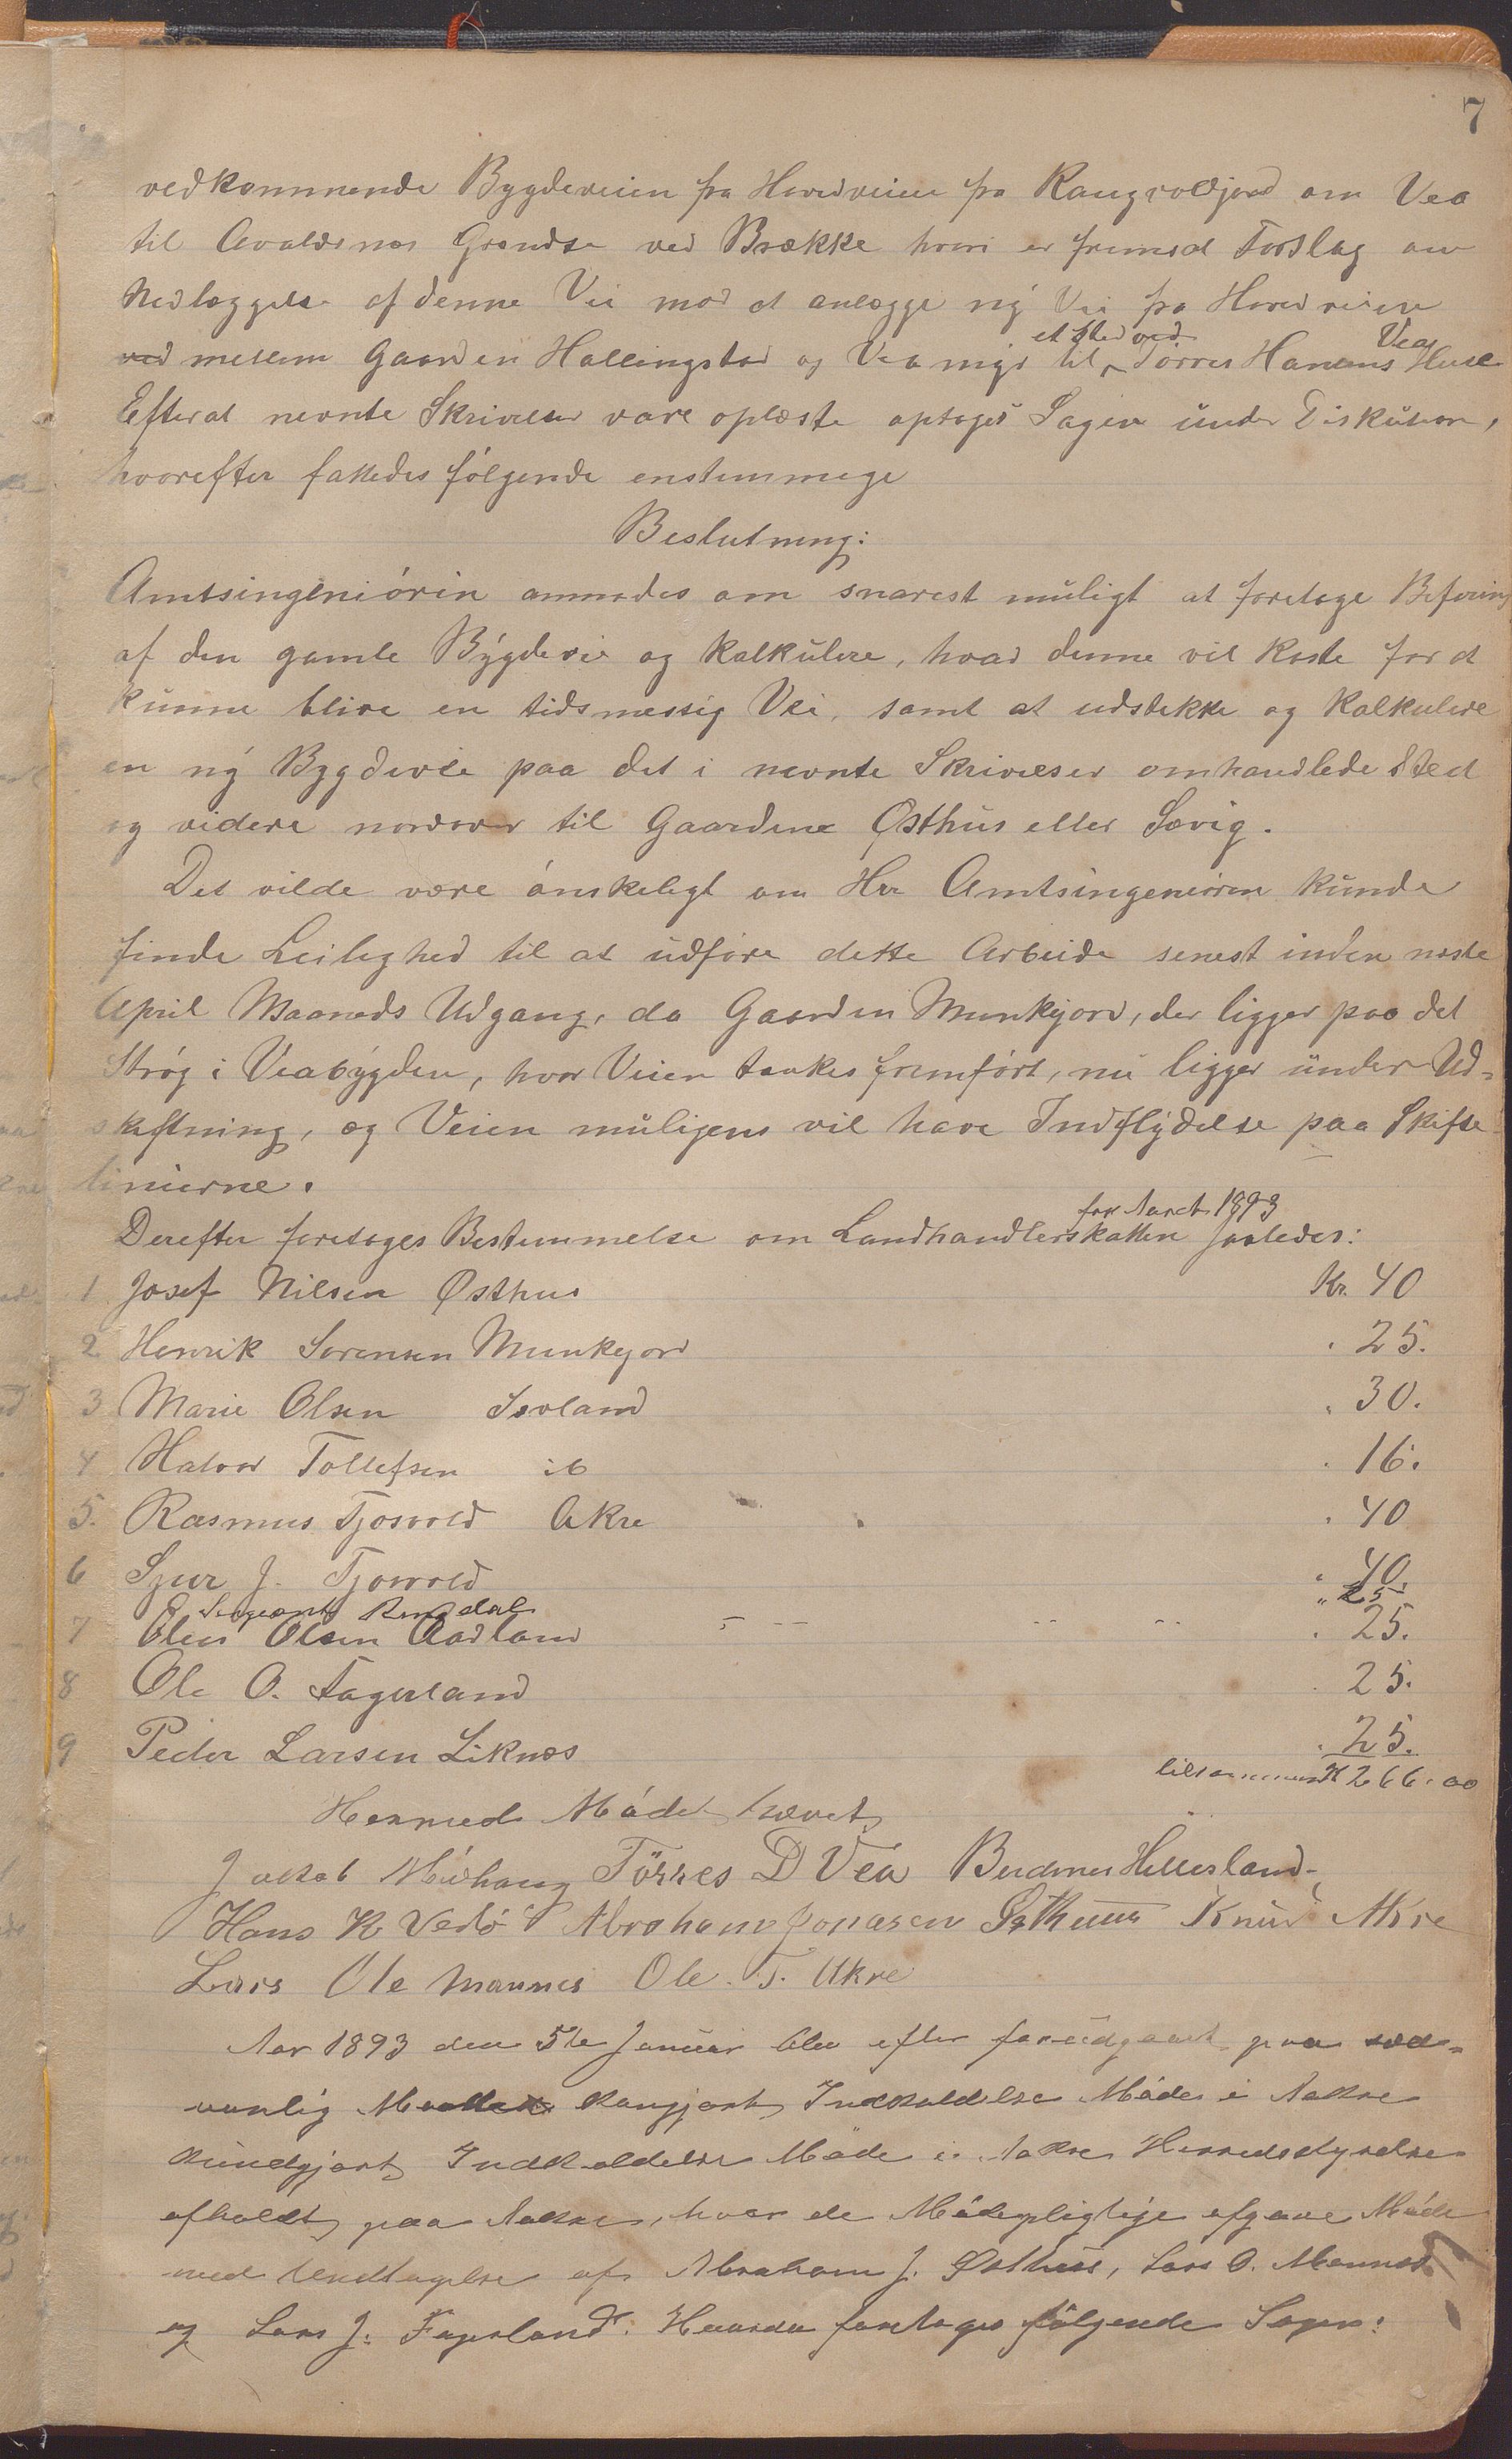 7
vedkommende Bygdeveien fra Hovedveien fra Rangvoldjord om Vea
til Avaldsnes Grændse ved Brække hvori er fremsat Forslag om
Nedlæggelse af denne Vei mod at anlægge ny Vei fra Hovedveien
ved mellem Gaarden Hallingstad og Veamyr til et Sted ved Törres Hansens Veas Huse
Efterat nevnte Skrivelser vare oplæste optoges Sagen under Diskusion,
hvorefter fattedes følgende enstemmige
Beslutning:
Amtsingeniórin anmodes om snarest muligt at foretage Befaring
af den gamle Bygdevei og kalkulere, hvad denne vil koste for at
kunne blive en tidsmessig Vei, samt at udstikke og kalkulere
en ny Bygdevei paa det i nevnte Skrivelser omhandlede Sted
og videre nordover til Gaardene Østhus eller Sævig.
Det vilde være ónskeligt om Hrr Amtsingeniören kunde
finde Leilighed til at udføre dette Arbeide senest inden næste
April Maaneds Udgang, da Gaarden Munkejord, der ligger paa det
Strög i Veabygden, hvor Veien tænkes fremfórt, nu ligger under Ud-
skiftning, og Veien muligens vil have Indflydelse paa Skifte
linierne.
Derefter foretoges Bestemmelse om Landhandlerskatten for Aaret 1893 saaledes:
1 Josef Nilsen Østhus Kr. 40
2 Henrik Sorensen Munkejord " 25.
3 Marie Olsen Sevland " 30.
4 Halvor Tollefsen ib " 16.
5. Rasmus Tjosvold Akre " 40
6 Sjur J. Tjosvold " 40.
Sergeant Ringdal " 25.
7 Olens Olsen Aadland " 25.
8 Ole O. Fagerland 25.
9 Peder Larsen Liknes " 25.
tilsammen Kr 266.00
Hermed Módet hævet
Jakob Midhaug Törres D Vea Berdines Hillesland
Hans K Vedö Abraham Jonasen Østhuus Knud Akre
Lars Ole Mannes Ole T. Akre
Aar 1893 den 5te Januar blev efter forudgaaet paa sæd-
vanlig Maade kungjort Indkaldelse Móde i Aakre
kundgjort Indkaldelse Móde i Aakre Herredsstyrelse
afholdt paa Aakre, hvor de Módepligtige afgave Móde
med Undtagelse af Abraham J. Østhus, Lars O. Mannes
og Lars J. Fagerland. Hvorda foretoges følgende Sager: